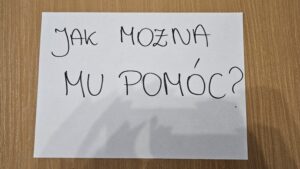 JAK MOZNA
MU POMÓC?